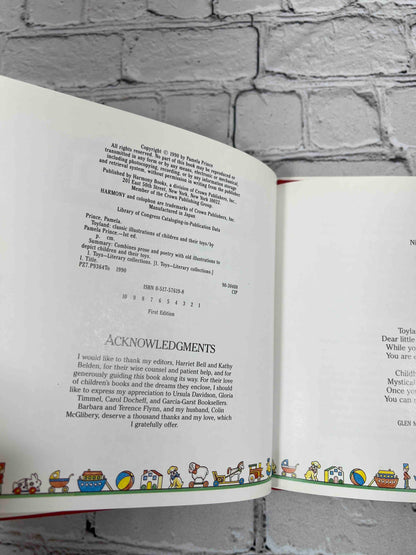 Copyright © 1990 by Pamela Prince
All rights reserved. No part of this book may be reproduced or
transmitted in any form or by any means, electronic or mechanical,
including photocopying, recording, or by any information storage
and retrieval system, without permission in writing from the publisher.
Published by Harmony Books, a division of Crown Publishers, Inc.,
201 East 50th Street, New York, New York 10022
Member of the Crown Publishing Group.
HARMONY and colophon are trademarks of Crown Publishers, Inc.
Manufactured in Japan
Library of Congress Cataloging-in-Publication Data
Prince, Pamela.
Toyland: classic illustrations of children and their toys/by
Pamela Prince.—1st ed.
p. cm.
Summary: Combines prose and poetry with old illustrations to
depict children and their toys.
1. Toys—Literary collections. [1. Toys—Literary collections.]
I. Title.
PZ7.P9364To 1990
CIP
ISBN 0-517-57619-8
10 9 8 7 6 5 4 3 2 1
First Edition
ACKNOWLEDGMENTS
I would like to thank my editors, Harriet Bell and Kathy
Belden, for their wise counsel and patient help, and for
generously guiding this book along its way. For their love
of children's books and the dreams they enclose, I should
like to express my appreciation to Ursula Davidson, Gloria
Timmel, Carol Docheff, and Garcia-Garst Booksellers.
Barbara and Terence Flynn, and my husband, Colin
McGlibery, deserve a thousand thanks and my love, which
I gratefully offer.
Toyla
Dear little
While yo
You are
Childh
Mystical
Once yo
You can
GLEN M